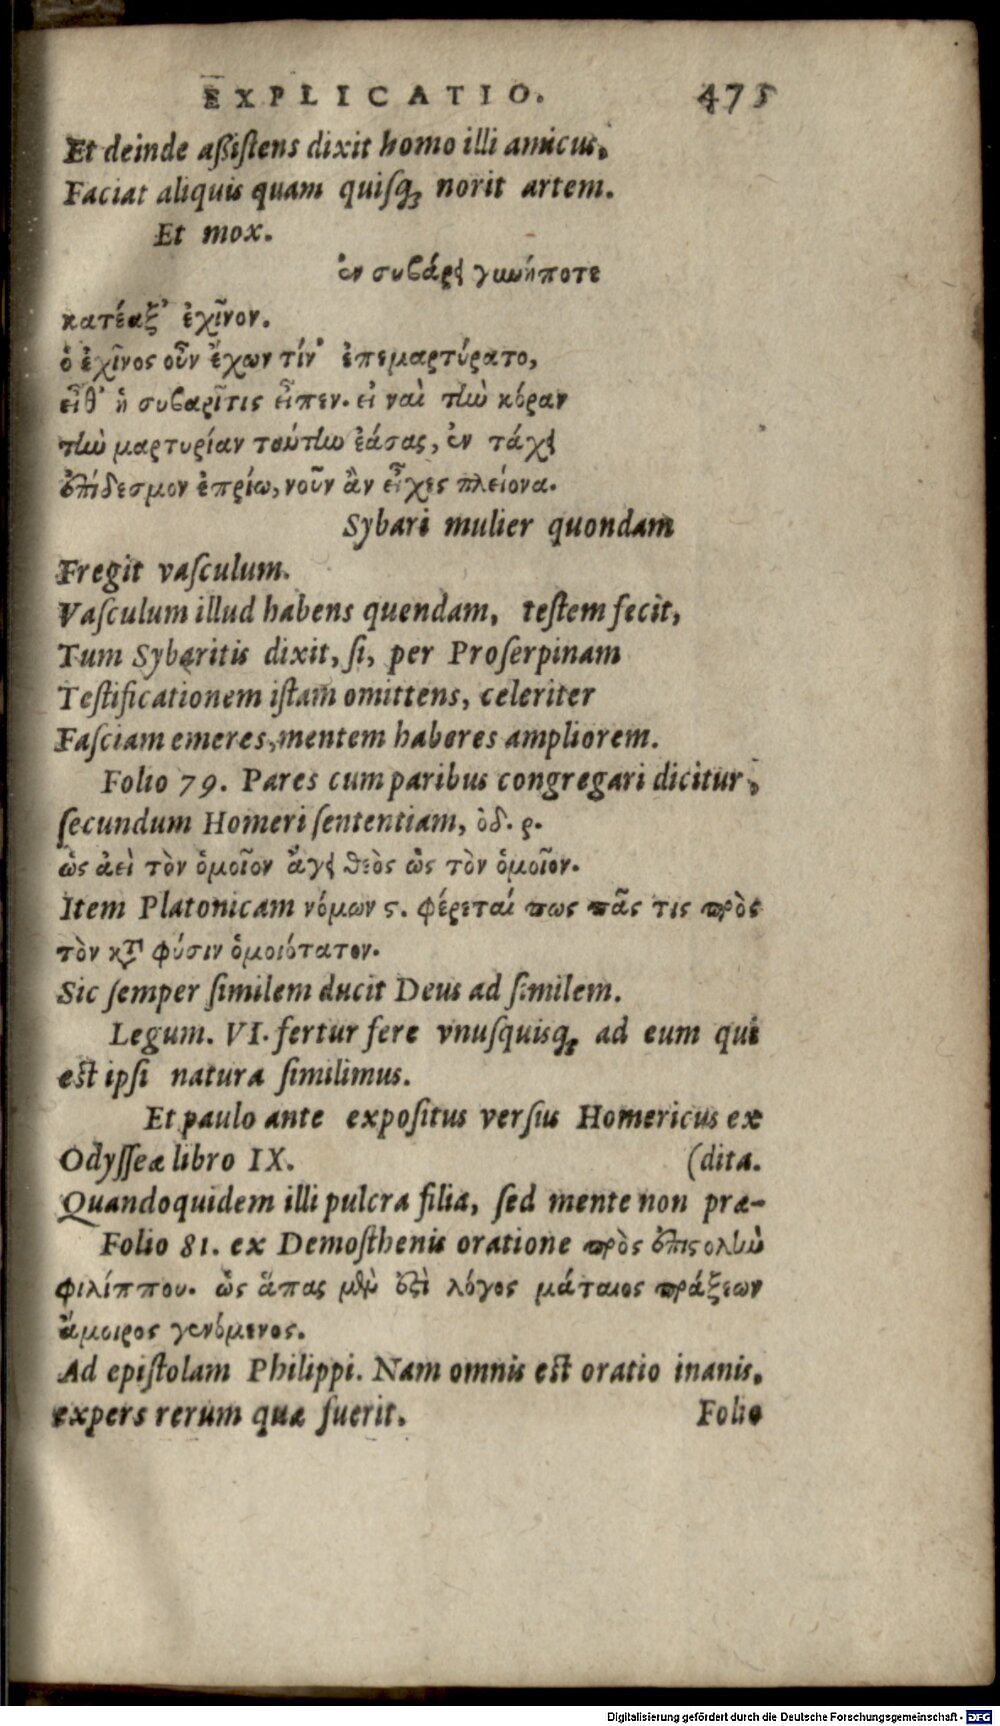 EXPLICATIO. 475
Et deinde aßiſtens dixit homo illi amicus,
Faciat aliquis quam quiſq; norit artem.
Et mox.
ἐν συβάρει γυνήποτε
κατέαξ᾽ ἐχῖνον.
ὁ ἐχῖνος οὖν ἔχων τίν᾽ ἐπεμαρτύρατο,
εἶθ᾽ ἡ συβαρῖτις εἶπεν. εἰ ναὶ τὴν κόραν
τὴν μαρτυρίαν ταύτην ἐάσας, ἐν τάχει
ἐπίδεσμον ἐπρίω, νοῦν ἂν εἶχες πλείονα.
Sybari mulier quondam
Fregit vaſculum.
Vaſculum illud habens quendam, teſtem fecit,
Tum Sybaritis dixit, ſi, per Proſerpinam
Teſtificationem iſtam omittens, celeriter
Faſciam emeres, mentem haberes ampliorem.
Folio 79. Pares cum paribus congregari dicitur,
ſecundum Homeri ſententiam, ὀδ. ρ.
ὡς ἀεὶ τὸν ὁμοῖον ἄγει θεὸς ὡς τὸν ὁμοῖον.
Item Platonicam νόμων ϛ. φέρεταί πως πᾶς τις πρὸς
τὸν κατὰ φύσιν ὁμοιότατον.
Sic ſemper ſimilem ducit Deus ad ſimilem.
Legum. VI. fertur fere vnuſquiſq; ad eum qui
eſt ipſi natura ſimilimus.
Et paulo ante expoſitus verſus Homericus ex
Odyſſeæ libro IX. (dita.
Quandoquidem illi pulcra filia, ſed mente non præ-
Folio 81. ex Demoſthenis oratione πρὸς ἐπιςολὴν
φιλίππου. ὡς ἅπας μέν ἐςὶ λόγος μάταιος πράξεων
ἄμοιρος γενόμενος.
Ad epiſtolam Philippi. Nam omnis eſt oratio inanis,
expers rerum quæ fuerit. Folio
Digitalisierung gefördert durch die Deutsche Forschungsgemeinschaft - DFG